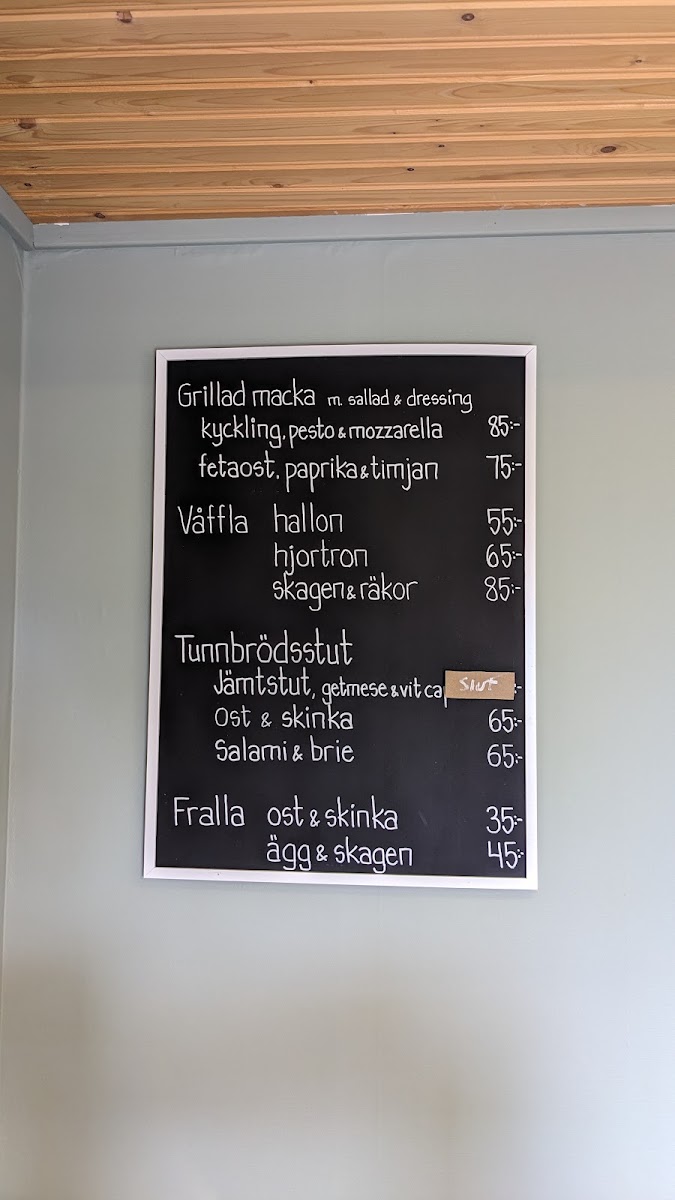 Grillad macka m. sallad & dressing
kyckling, pesto & mozzarella 85:-
fetaost, paprika & timjan 75:-
Våffla hallon 55:-
hjortron 65:-
skagen & räkor 85:-
Tunnbrödsstut
Jämtstut, getmese & vit Slut :-
Ost & skinka 65:-
Salami & brie 65:-
Fralla ost & skinka 35:-
ägg & skagen 45:-